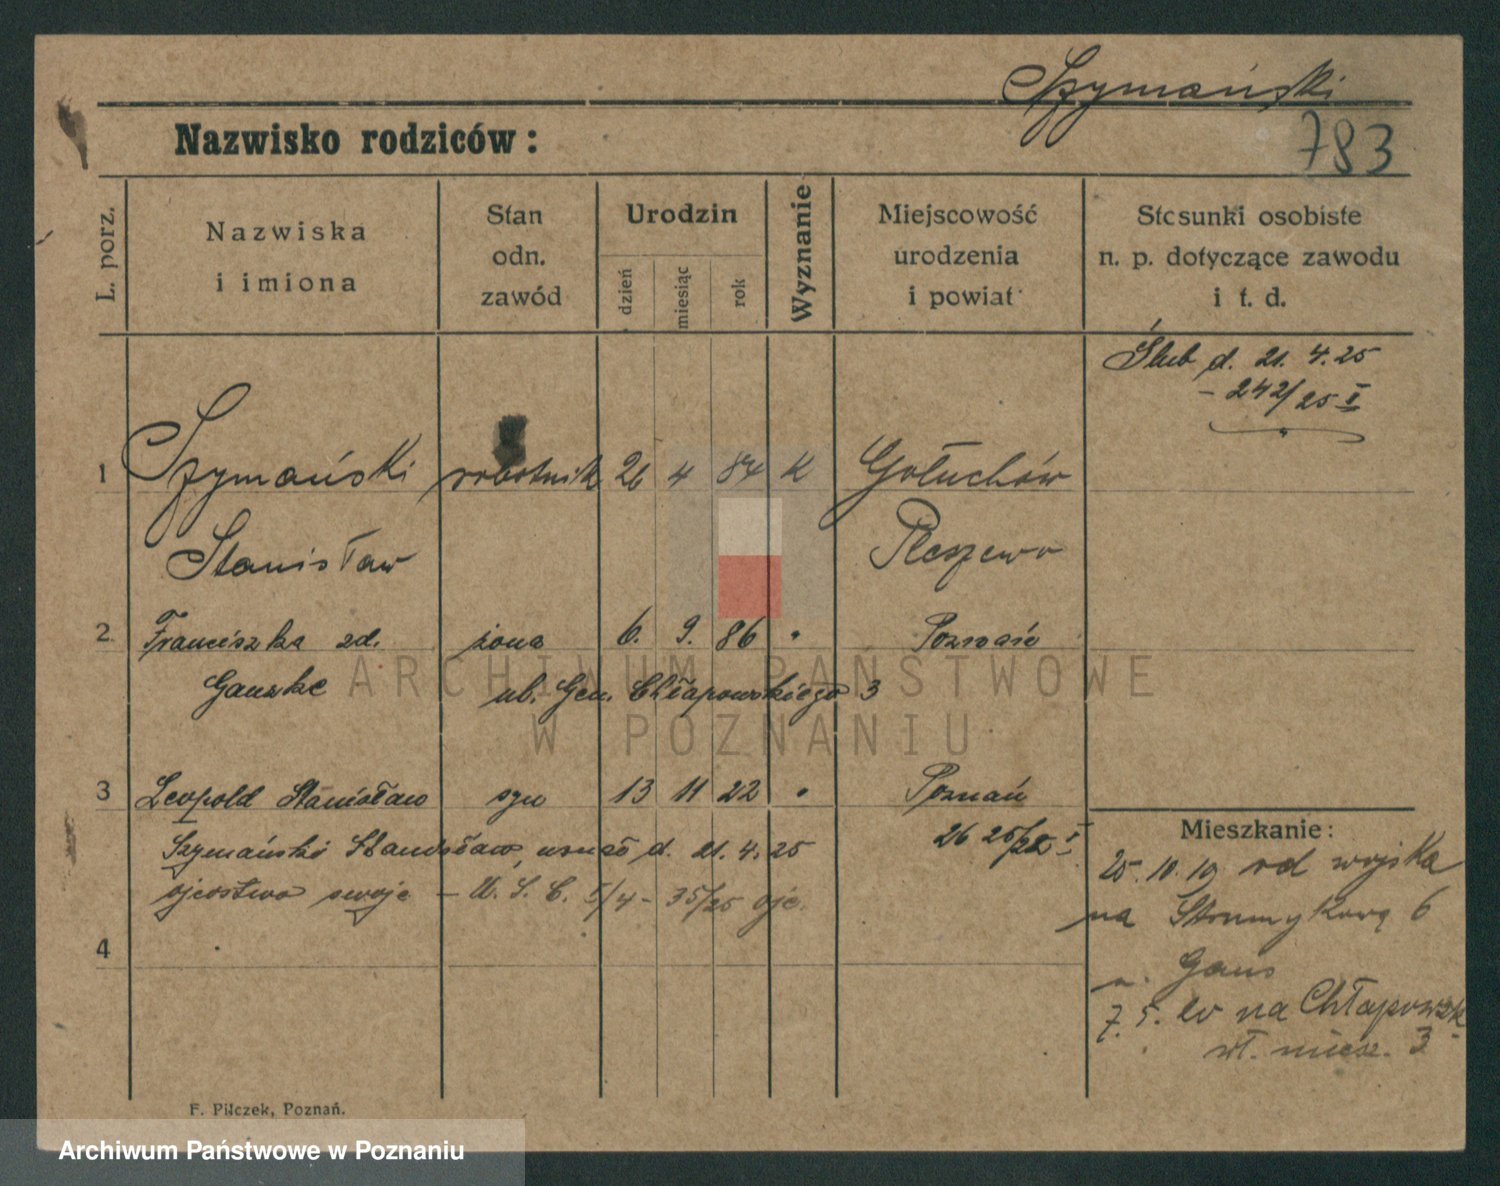 Szymański
783
Nazwisko rodziców:
L. porz.
Nazwiska
i imiona
Stan
odn.
zawód
Urodzin
dzień
miesiąc
rok
Wyznanie
Miejscowość
urodzenia
i powiat
Stosunki osobiste
n. p. dotyczące zawodu
i t. d.
Ślub d. 21. 4. 25
- 242/25 I
1 Szymański robotnik 26 4 84 K Gołuchów
Stanisław Pleszewo
2 Franciszka zd. żona 6. 9. 86 " Poznań
Ganske ul. Gen. Chłapowskiego 3
3 Leopold Stanisław syn 13 11 22 " Poznań
26 25/22 I
Szymański Stanisław, uznał d. 21. 4. 25
ojcostwo swoje - U. S. C. 5/4 - 35/25 ojc.
4
Mieszkanie:
25. 10. 19 od wojska
na Strumykową 6
u. Gans
7. 5. 20 na Chłapowsk
wł. miesz. 3
F. Pilczek, Poznań.
ARCHIWUM PAŃSTWOWE
W POZNANIU
Archiwum Państwowe w Poznaniu